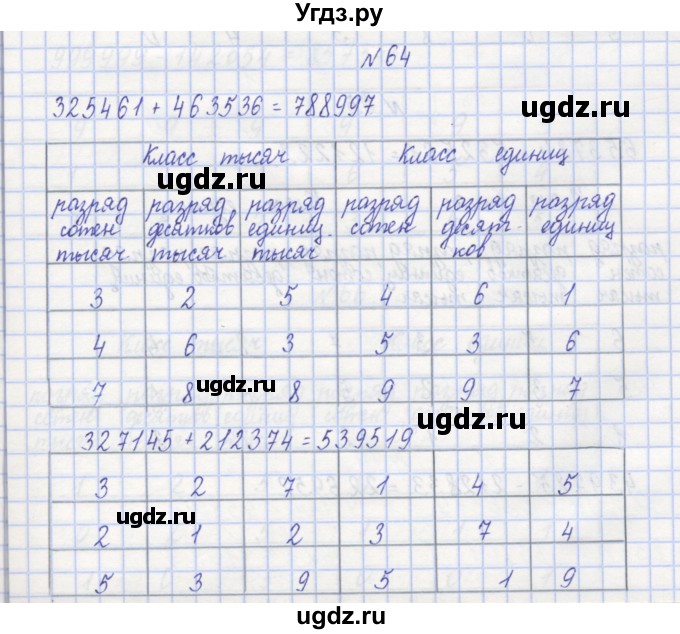 Угдз.ру
N 64
325461 + 463536 = 788997
ugdz.ru
Класс тысяч Класс единиц
ugdz.ru
разряд разряд разряд разряд разряд разряд
сотен десятков единиц. сотен десят- единиц
тысяч тысяч тысяч ков
3 2 5 4 6 1
4 6 3 5 3 6
7 8 8 9 9 7
ugdz.ru
ugdz.ru
327145 + 212374 = 539519
3 2 7 1 4 5
ugdz.ru
2 1 2 3 7 4
5 3 9 5 1 9
ugdz.ru
ugdz.ru